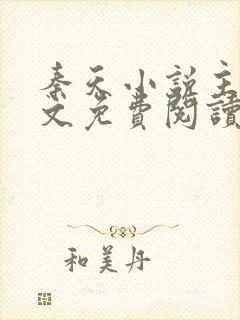 秦天小説主
文免費閱讀
和美丹